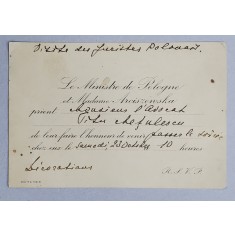 Visite des Juristes Polonais.
Le Ministre de Pologne
et Madame Arciszewska
prient Monsieur l'Avocat
Titus
de leur faire l'honneur de venir passer la soirée
chez eux le Samedi, 23 Octobre 10 heures
Décorations
R.S.V.P.